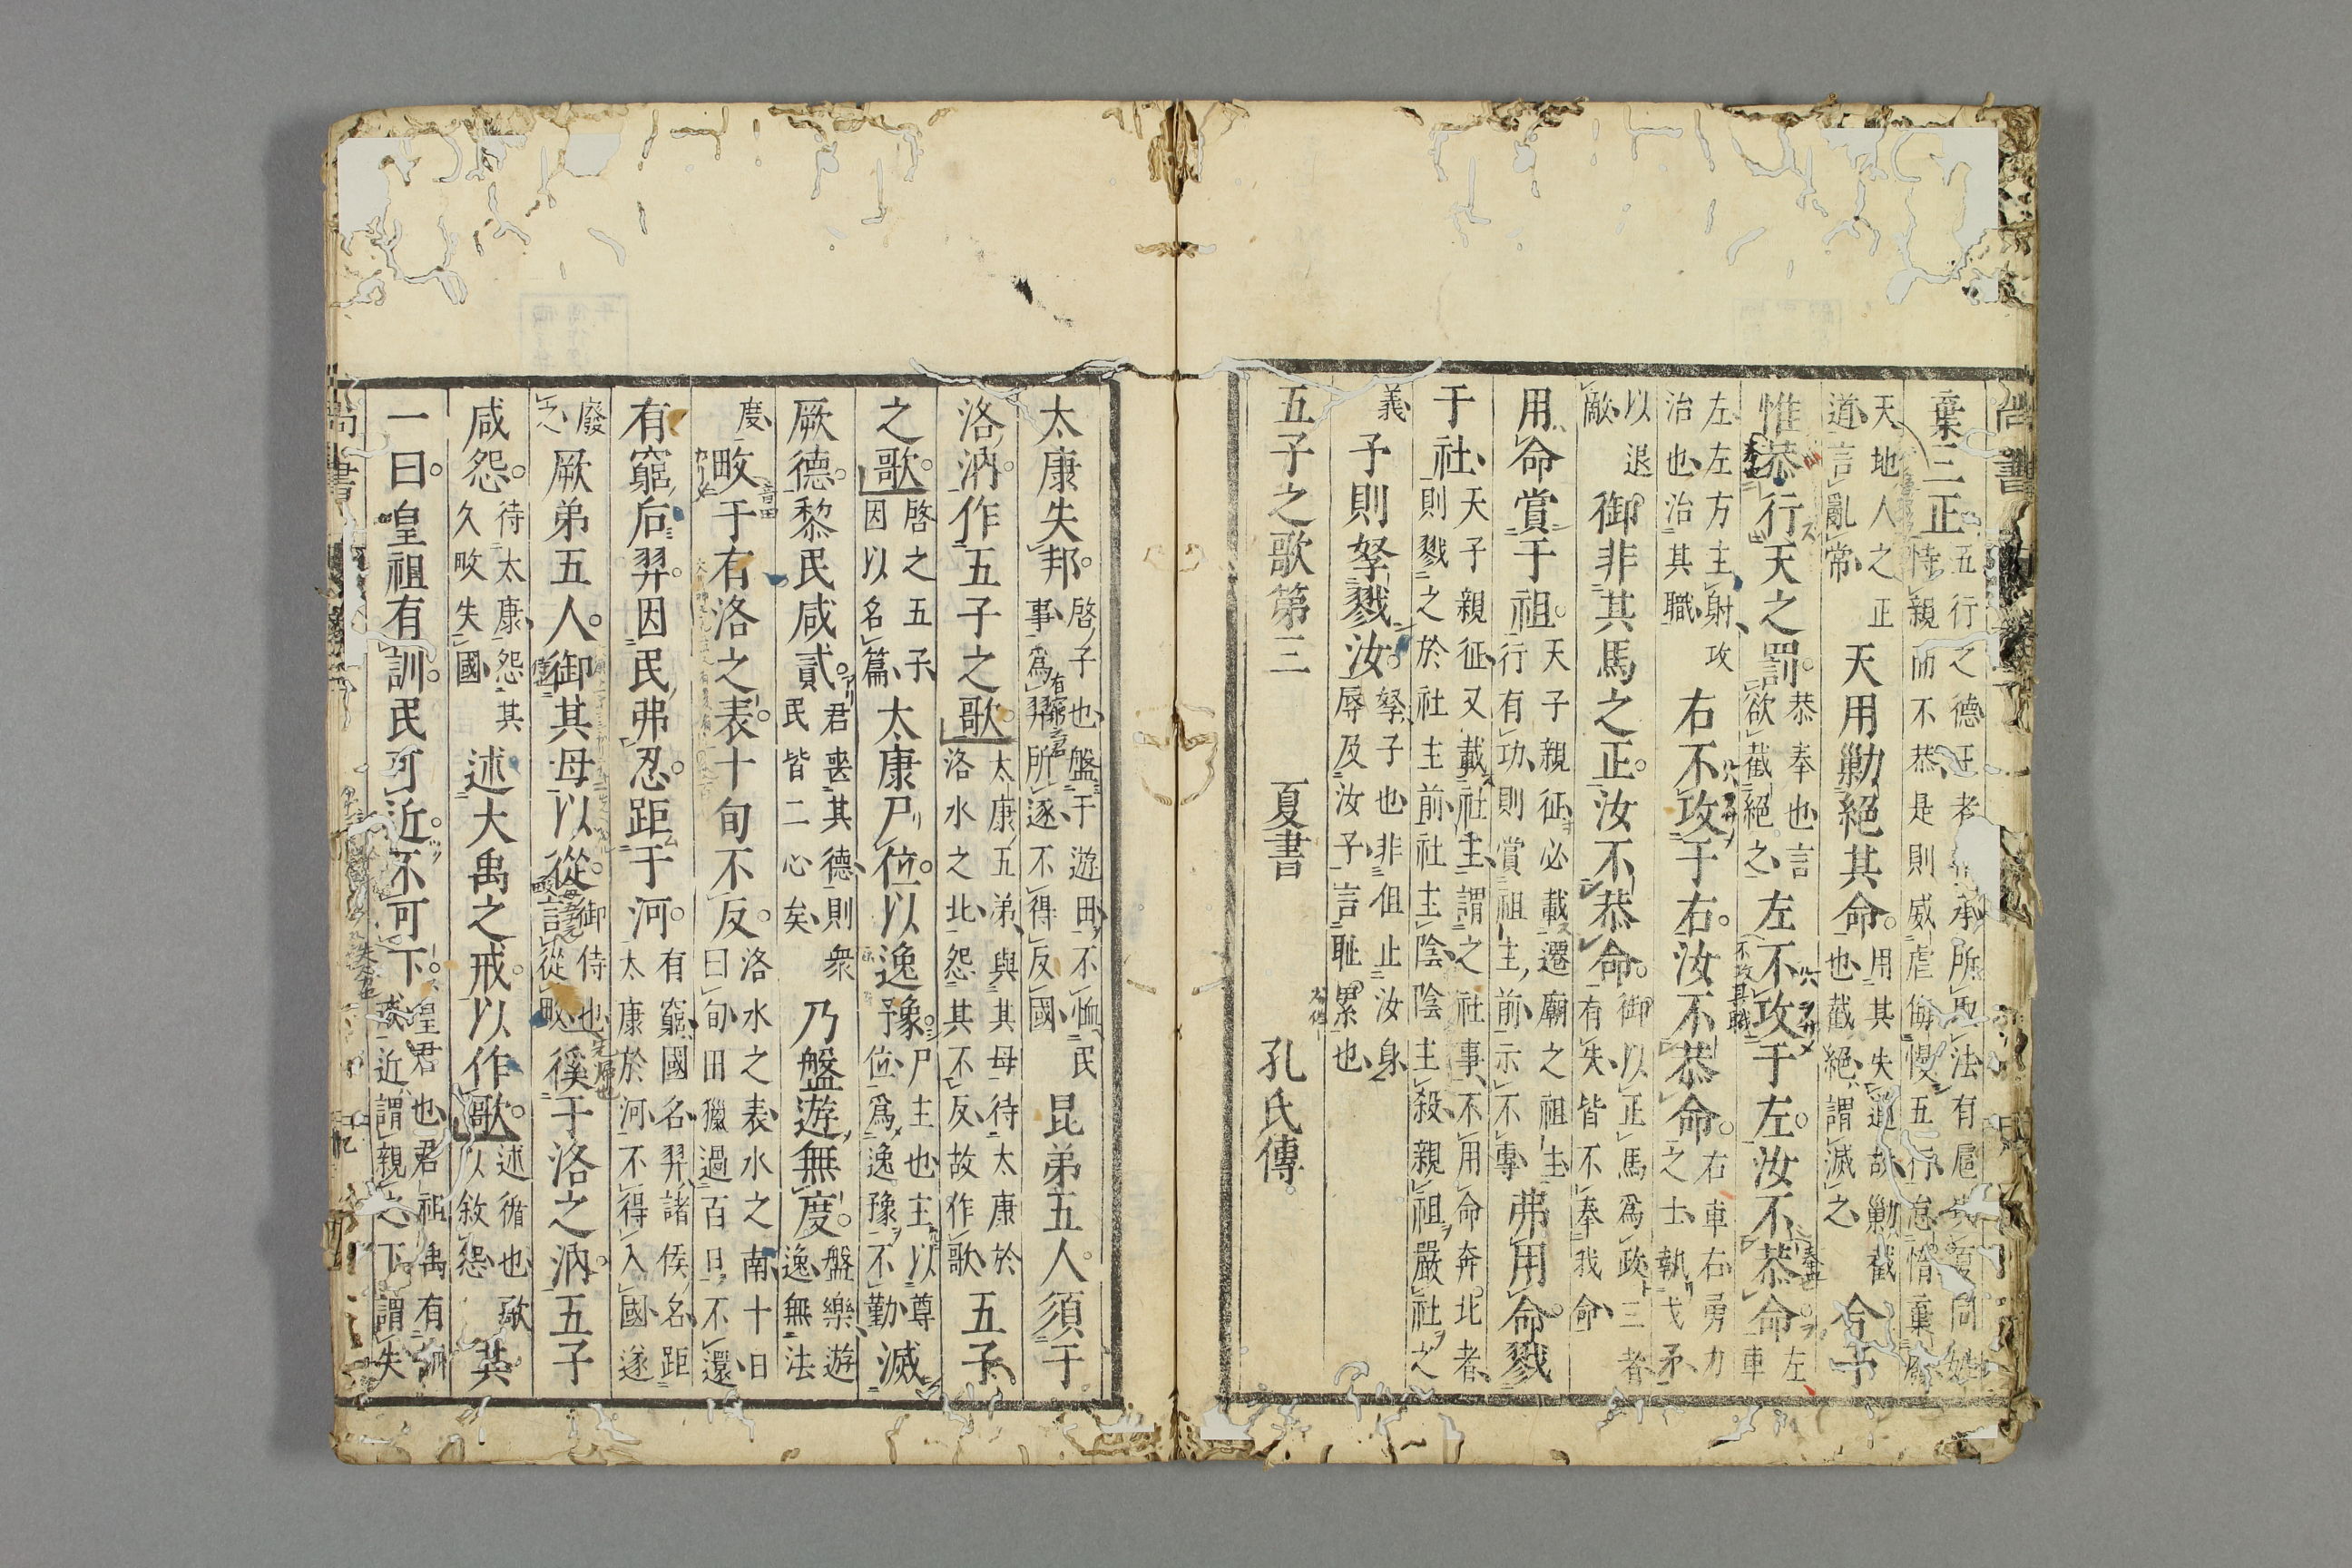 尚書
棄三正五行之德王者相承所取法有扈與夏同姓恃親而不恭是則威虐侮慢五行怠惰棄廢
天地人之正道言亂常天用勦絕其命用其失道故勦截也截絕謂滅之今予
惟恭行天之罰恭奉也言欲截絕之左不攻于左汝不恭命左車
左左方主射攻治也治其職右不攻于右汝不恭命右車右勇力之士執戈矛
以退敵御非其馬之正汝不恭命御以正馬爲政三者有失皆不奉我命
用命賞于祖天子親征必載遷廟之祖主行有功則賞祖主前示不專弗用命戮
于社天子親征又載社主謂之社事不用命奔北者則戮之於社主前社主陰陰主殺親祖嚴社之
義予則孥戮汝孥子也非但止汝身辱及汝子言耻累也
五子之歌第三 夏書 孔氏傳
太康失邦啓子也盤于遊田不恤民事爲羿所逐不得反國昆弟五人須于
洛汭作五子之歌太康五弟與其母待太康於洛水之北怨其不反故作歌五子
之歌啓之五子因以名篇太康尸位以逸豫尸主也主以尊位爲逸豫不勤滅
厥德黎民咸貳君喪其德則衆民皆二心矣乃盤遊無度盤樂遊逸無法
度畋于有洛之表十旬不反洛水之表水之南十日曰旬田獵過百日不還
有窮后羿因民弗忍距于河有窮國名羿諸侯名距太康於河不得入國遂
廢之厥弟五人御其母以從御侍也言從畋徯于洛之汭五子
咸怨待太康怨其久畋失國述大禹之戒以作歌述循也歌以敘怨其
一曰皇祖有訓民可近不可下皇君也君祖禹有訓戒近謂親之下謂失
尚書